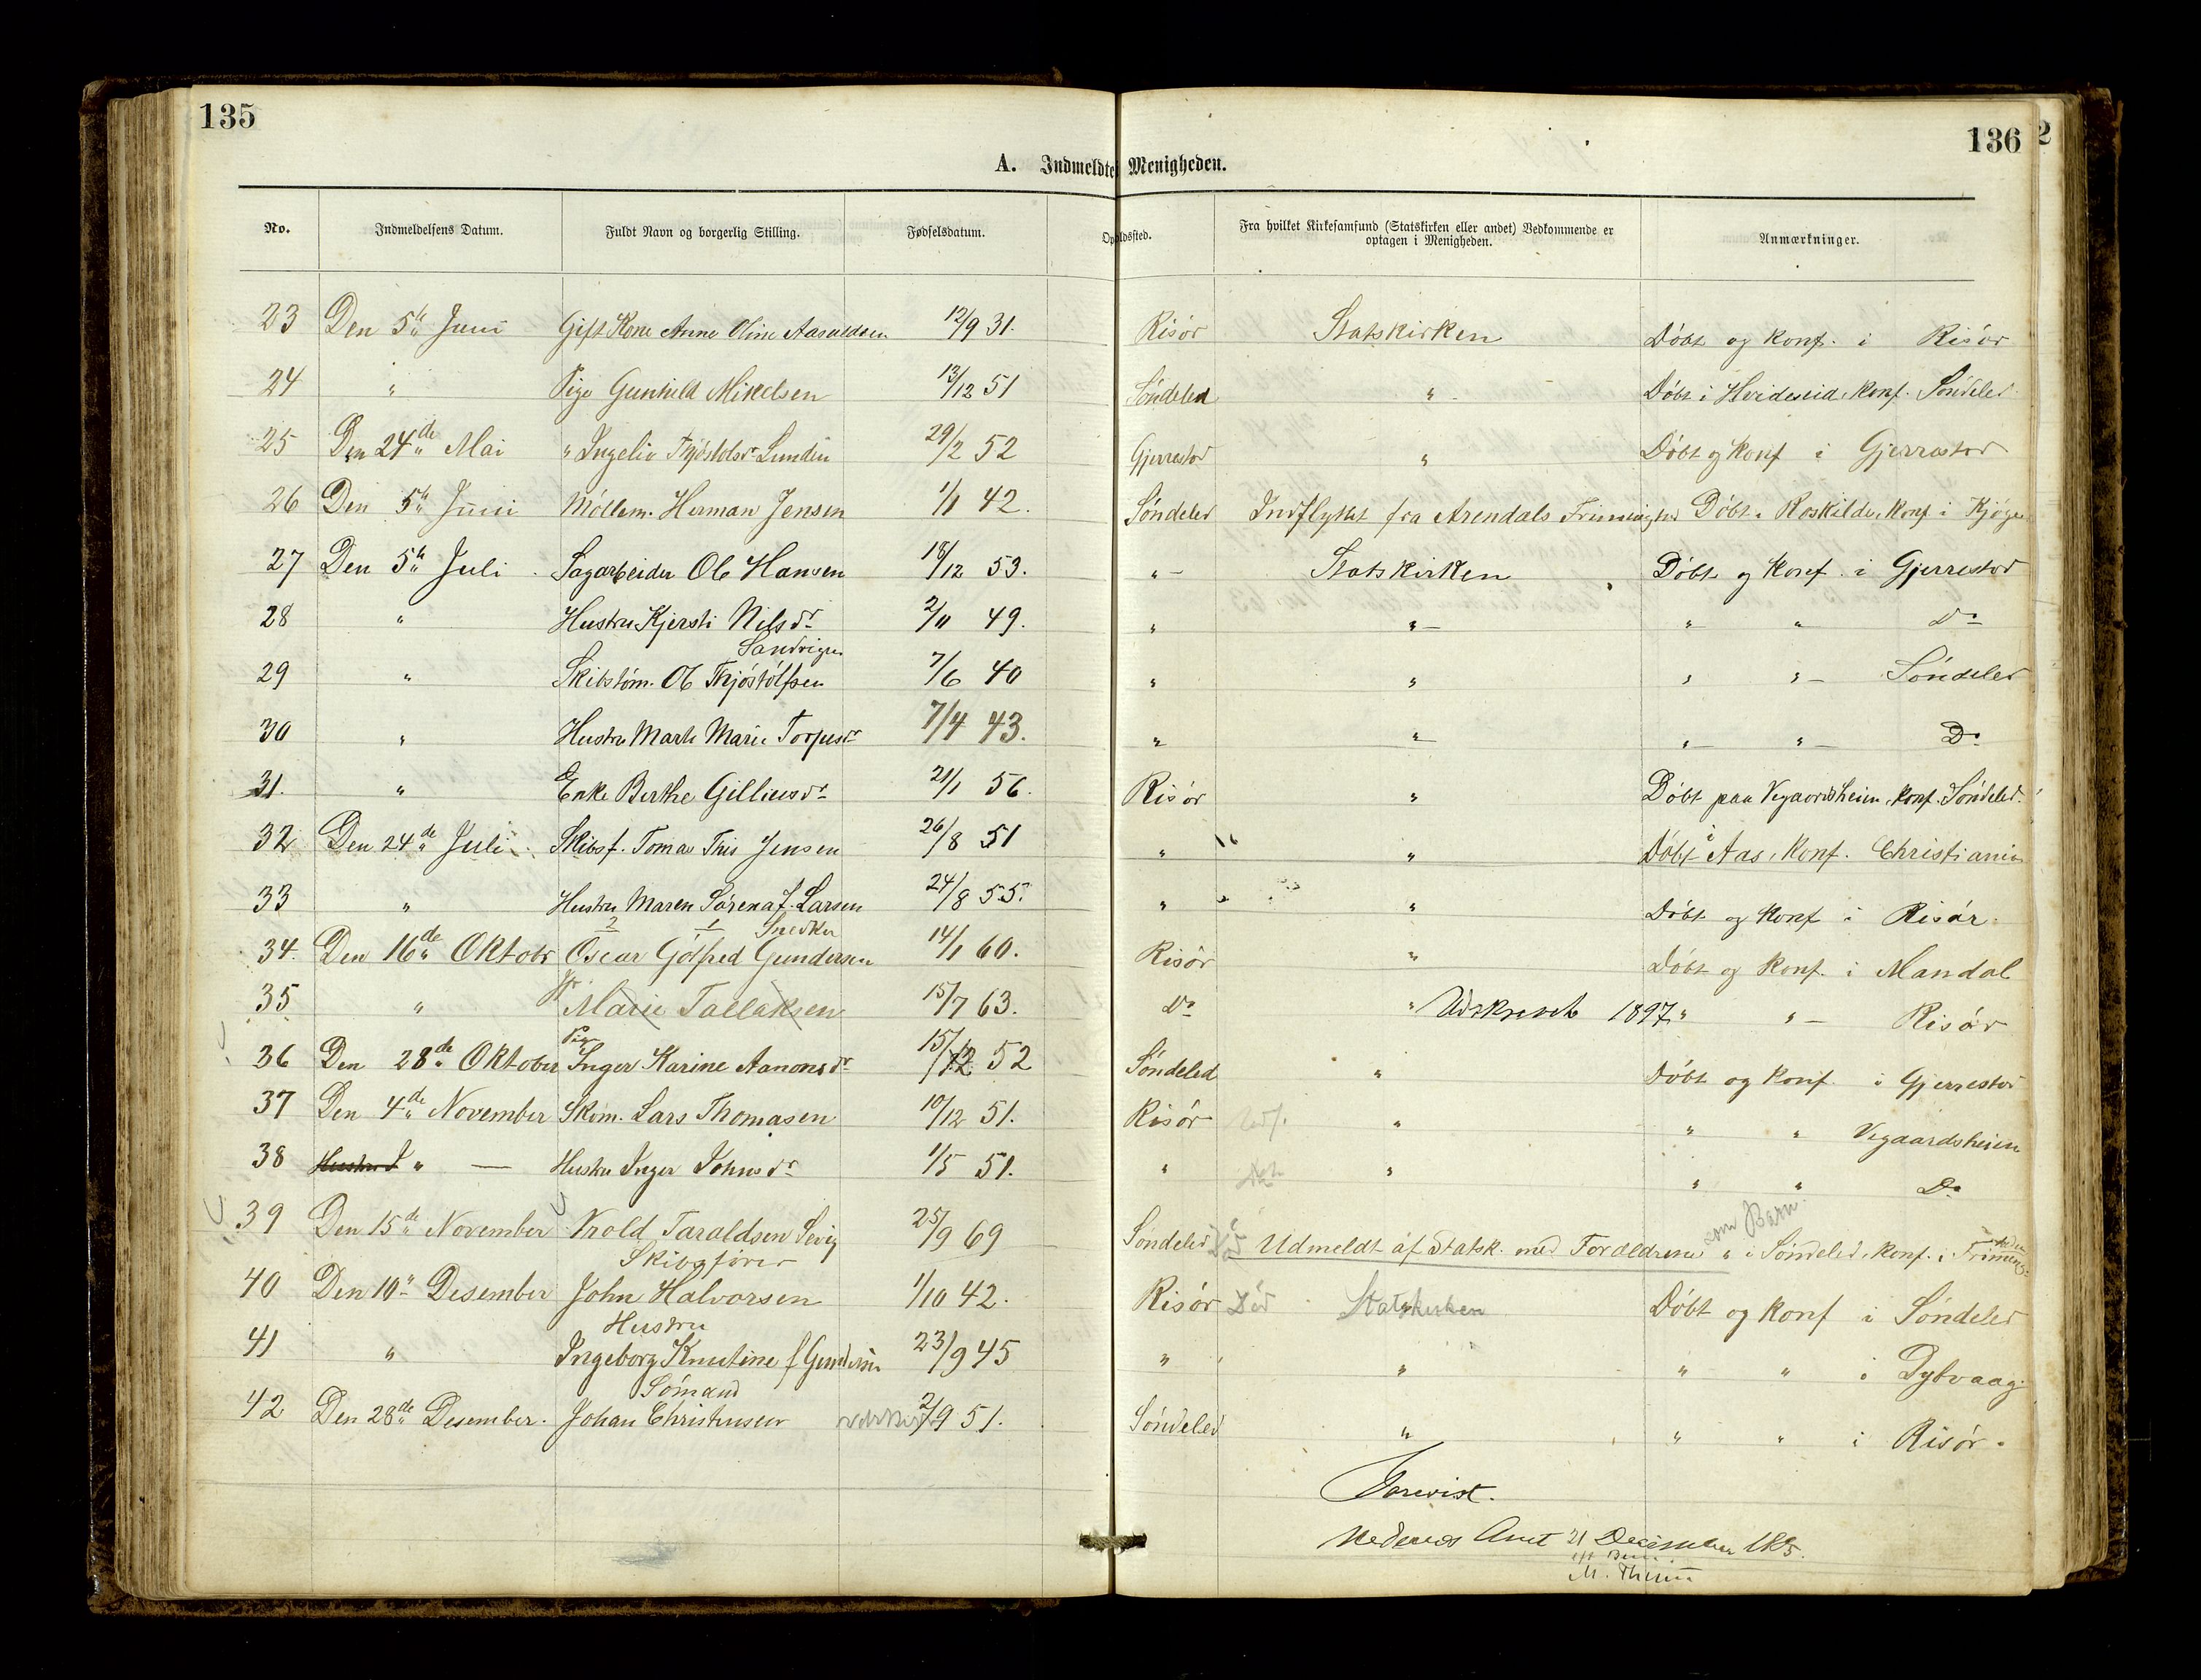 135
136
2
A. Indmeldte Menigheden.
No. Indmeldelsens Datum. Fuldt Navn og borgerlig Stilling. Fødselsdatum. Opholdssted. Fra hvilket Kirkesamfund (Statskirken eller andet) Vedkommende er optagen i Menigheden. Anmærkninger.
23 Den 5te Juni Gift Kone Anne Oline Aasuldsen 12/9 31. Risör Statskirken Döbt og konf. i Risör
24 " Pige Gunhild Mikelsen 13/12 51 Söndeled " Döbt i Hvideseid, konf. Söndeled
25 Den 24de Mai " Ingeliv Lunden 29/2 52 Gjerrestad " Döbt og konf i Gjerrestad
26 Den 5te Juni Möllem. Herman Jensen 1/1 42. Söndeled Indflyttet fra Arendals Frimenighed Döbt i Roskilde, konf i Kjöge
27 Den 5te Juli Sagarbeider Ole Hansen 18/12 53. " Statskirken Döbt og konf. i Gjerrestad
28 " Hustru Kjersti Nilsdr 2/11 49. " " " " Do
Sandvigen
29 " Skibstöm. Ole Thjöstölfsen 7/6 40 " " " " Söndeled
30 " Hustru Marte Marie Torjusdr 7/4 43. " " " " Do
31. " Enke Berthe Gilliusdr 21/1 56. Risör " Döbt paa Vegaardsheien, konf. Söndeled.
32 Den 24de Juli Skibsf. Tomas This Jensen 26/8 51 " " Döbt i Aas, konf. Christiania
33 " Hustru Maren Sörena f. Larsen 24/8 55. " " Döbt og konf i Risör.
2 1 Snedker
34. Den 16de Oktobr Oscar Götfred Gundersen 14/1 60. Risör " Döbt og konf. i Mandal
35 " Marie Tallaksen 15/7 63. Do " Udskrevet 1897 " " Risör
Pige
36 Den 28de Oktober Inger Karine Aanonsdr 15/12 52 Söndeled " Döbt og konf. i Gjerrestad
37 Den 4de November Skom. Lars Thomasen 10/12 51. Risör " " " Vegaardsheien
38 Hustru I " Hustru Inger Johnsdr 1/5 51. " " " " Do
39 Den 15de November Vrold Taraldsen Sevig 25/9 69 Söndeled Död Udmeldt af Statsk. med Foreldrene som Barn " i Söndeled, konf. i Frimenig-heden
Skibsförer
40 Den 10de Desember John Halvorsen 1/10 42. Risör Död Statskirken Döbt og konf i Söndeled
Hustru
41 " Ingeborg Knutine f Gundersen 23/9 45 " " " " i Dybvaag.
Sömand
42 Den 28de Desember. Johan Christensen 2/9 51. Söndeled " " " i Risör.
Forevist.
Nedenes Amt 21 December 1885.